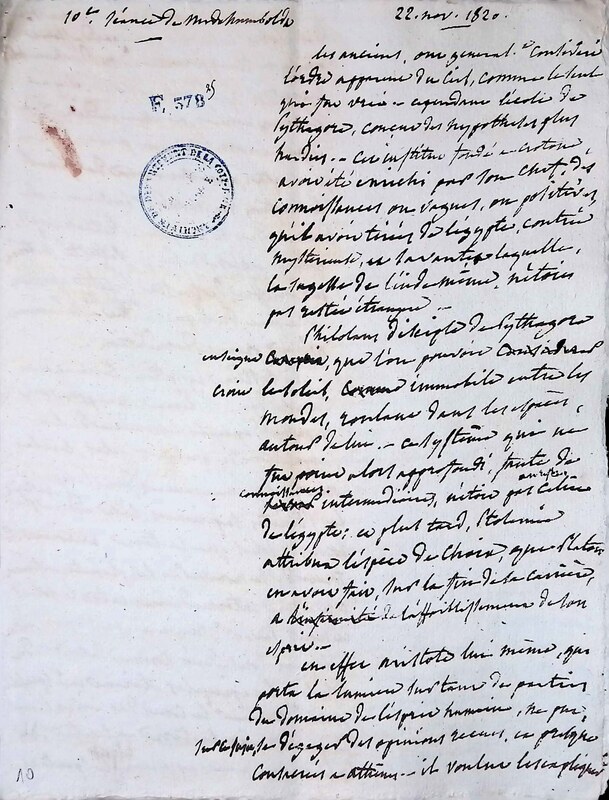 10e. séance de Mr de humboldt
22. nov. 1820.
F. 578 35
les anciens, ont general.t considéré
l'ordre apparent du Ciel, comme le seul
qui fut vrai – cependant l'école de
Pythagore, concut des hypotheses plus
hardies. – Cet institut fondé a crotone,
avoit été enrichi par son chef, des
connoissances ou vagues, ou positives
qu'il avoit tirées de l'égypte, contrée
mysterieuse, et savante laquelle,
la sagesse de l'inde même, n'étoit
pas restée étrangere –
Philolaus disciple de Pythagore
enseigne que l'on pouvoit
croire le soleil, immobile entre les
mondes, roulant dans les espaces,
autour de lui. – ce système qui ne
fut point alors approfondi, faute de
connoissances intermédiaires, n'étoit pas celui
de l'égypte: et plus tard, Ptolemée
attribua l'espèce de choix, que Platon
en avoit fait, sur la fin de sa carrière,
a l'affoiblissement de son
esprit. –
en effet aristote lui même, qui
porta la lumiere sur tant de parties
du domaine de l'esprit humain, ne put,
se dégager des opinions recues, et presque
consacrées a athènes – il voulut les expliquer
10